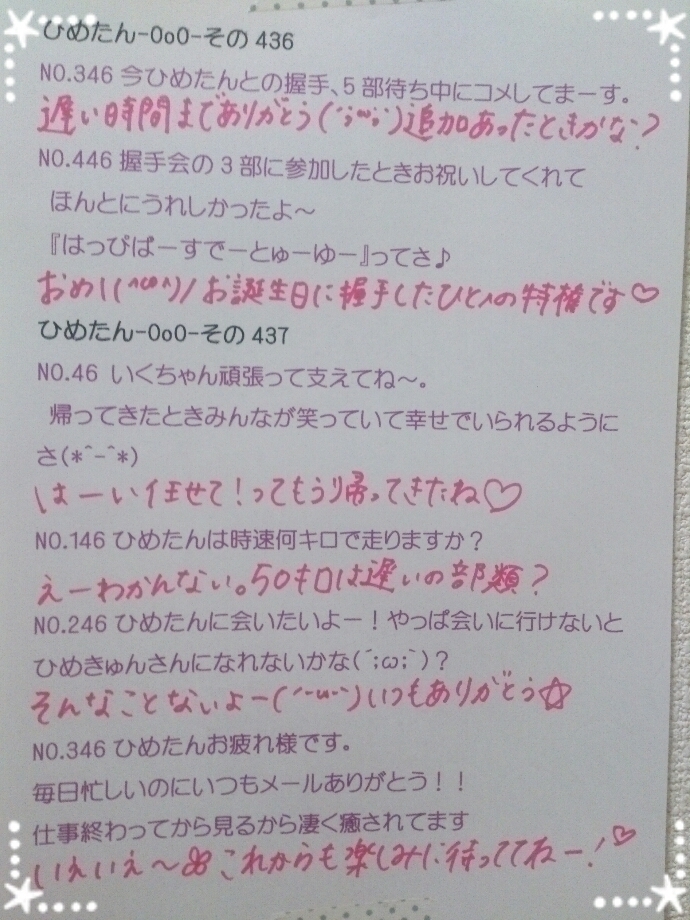 ひめたん-OoO-その436
NO.346 今ひめたんとの握手、5部待ち中にコメしてまーす。
遅い時間までありがとう(´;ω;`)追加あったときかな?
NO.446 握手会の3部に参加したときお祝いしてくれて
ほんとにうれしかったよ～
『はっぴばーすでーとゅーゆー』ってさ♪
おめ!(^ω^)/お誕生日に握手したひとへの特権です♡
ひめたん-OoO-その437
NO.46 いくちゃん頑張って支えてね～。
帰ってきたときみんなが笑っていて幸せでいられるように
さ(*^-^*)
はーい任せて!ってもう帰ってきたね♡
NO.146 ひめたんは時速何キロで走りますか？
えーわかんない。50キロは遅いの部類?
NO.246 ひめたんに会いたいよー！やっぱ会いに行けないと
ひめきゅんさんになれないかな(´;ω;`)？
そんなことないよー(´･ω･`)いつもありがとう☆
NO.346 ひめたんお疲れ様です。
毎日忙しいのにいつもメールありがとう！！
仕事終わってから見るから凄く癒されてます
いえいえ～ これからも楽しみに待っててねー!♡